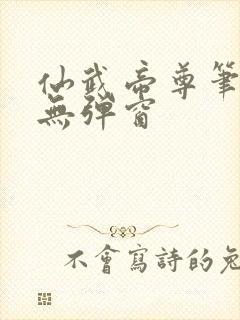 仙武帝尊筆
無彈窗
不會寫詩的兔